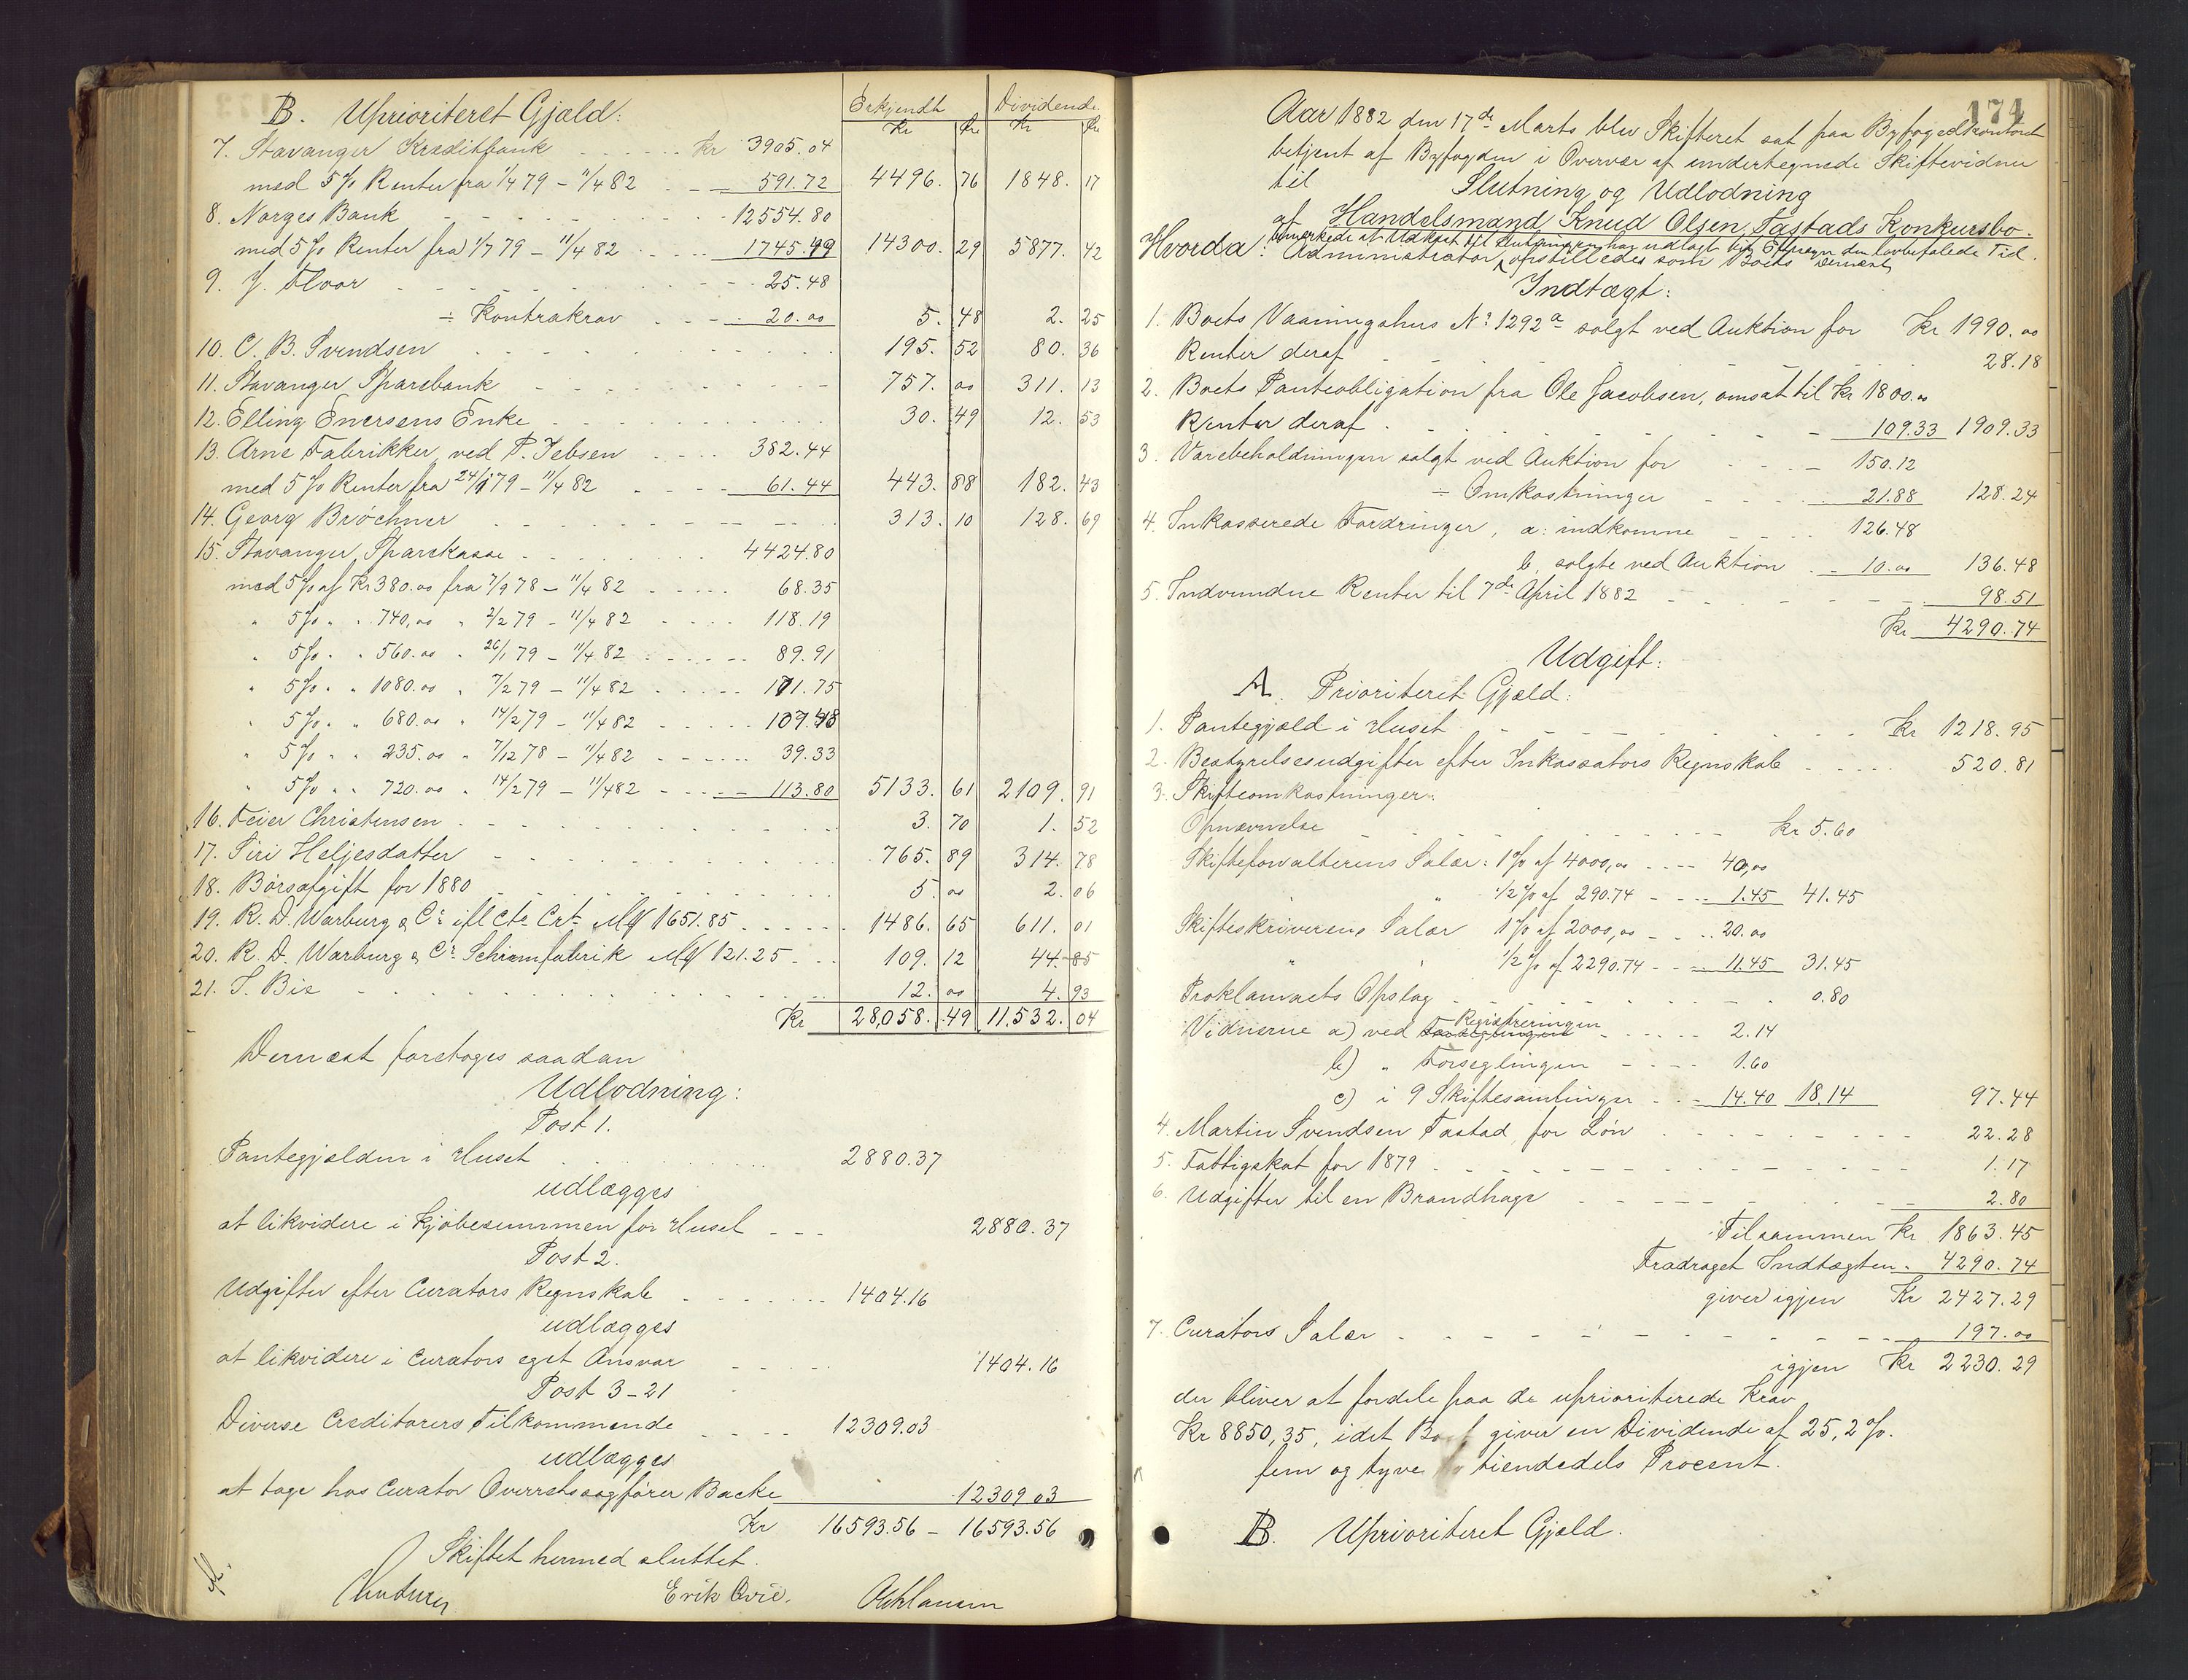 B. Uprioriteret Gjæld: Erkjendt Dividende
Kr Ør Kr Ør
7. Stavanger Kreditbank Kr 3905.04
med 5 % Renter fra 1/4 79 – 11/4 82 591.72 4496. 76 1848. 17
8. Norges Bank 12554.80
med 5 % Renter fra 1/7 79 – 11/4 82 1745.49 14300. 29 5877. 42
9. J. Floor 25.48
÷ Kontrakrav 20.00 5. 48 2. 25
10. C. B. Svendsen 195. 52 80. 36
11. Stavanger Sparebank 757. 00 311. 13
12. Elling Enersens Enke 30. 49 12. 53
13. Arne Fabrikker ved P. Jebsen 382.44
med 5 % Renter fra 24/1 79 – 11/4 82 61.44 443. 88 182. 43
14. Georg Bröchner 313. 10 128. 69
15. Stavanger Sparekasse 4424.80
med 5 % af Kr 380.00 fra 7/9 78 – 11/4 82 68.35
" 5 % " " 740,00 " 2/2 79 – 11/4 82 118.19
" 5 % " " 560.00 " 26/1 79 – 11/4 82 89.91
" 5 % " " 1080.00 " 7/2 79 – 11/4 82 171.75
" 5 % " " 680.00 " 14/2 79 – 11/4 82 107.48
" 5 % " " 235.00 " 7/12 78 – 11/4 82 39.33
" 5 % " " 720.00 " 14/2 79 – 11/4 82 113.80 5133. 61 2109. 91
16. Feier Christensen 3. 70 1. 52
17. Siri Heljesdatter 765. 89 314. 78
18. Börsafgift for 1880 5. 00 2. 06
19. R. D. Warburg & Co ifl Cto Crt Mk 1651.85 1486. 65 611. 01
20. R. D. Warburg & Co Schirmfabrik Mk 121.25 109. 12 44. 85
21. S. Bie 12. 00 4. 93
Kr 28,058. 49 11,532. 04
Dernæst foretoges saadan
Udlodning:
Post 1.
Pantegjælden i Huset 2880.37
udlægges
at likvidere i Kjøbesummen for Huset 2880.37
Post 2.
Udgifter efter Curators Regnskab 1404.16
udlægges
at likvidere i Curators eget Ansvar 1404.16
Post 3–21
Diverse Creditorers Tilkommende 12309.03
udlægges
at tage hos Curator Overretssagfører Backe 12309 03
Kr 16593.56 – 16593.56
Skiftet hermed sluttet.
Erik Qvie.
174
Aar 1882 den 17de Marts blev Skifteret sat paa Byfogedkontoret
betjent af Byfogden i Overvær af undertegnede Skiftevidner
til Slutning og Udlodning
af Handelsmand Knud Olsen Tastads Konkursbo.
bemærkedes at Udkast til Slutningen har udlagt til Eftersyn den lovbefalede Tid.
Hvorda: Administrator opstilledes som Boets Dernæst
Indtægt:
1. Boets Vaaningshus No 1292a solgt ved Auktion for Kr 1990.00
Renter deraf 28.18
2. Boets Panteobligation fra Ole Jacobsen, omsat til Kr 1800.00
Renter deraf 109.33 1909.33
3. Varebeholdningen solgt ved Auktion for 150.12
÷ Omkostninger 21.88 128.24
4. Inkasserede Fordringer, a: indkomne 126.48
b, solgte ved Auktion 10.00 136.48
5. Indvundne Renter til 7de April 1882 98.51
Kr 4290.74
Udgift:
A. Prioriteret Gjæld:
1. Pantegjæld i Huset Kr 1218.95
2. Bestyrelsesudgifter efter Inkassators Regnskab 520.81
3. Skifteomkostninger:
Opnævnelse Kr 5.60
Skifteforvalterens Salær: 1 % af 4000,00 40,00
" " 1/2 % af 290.74 1.45 41.45
Skifteskriverens Salær 1 % af 2000,00 20.00
" " 1/2 % af 2290.74 11.45 31.45
Proklamaets Opslag 0.80
Registreringen
Vidnerne a) ved Forseglingen 2.14
b) " Forseglingen 1.60
c) i 9 Skiftesamlinger 14.40 18.14 97.44
4. Martin Svendsen Tastad for Løn 22.28
5. Fattigskat for 1879 1.17
6. Udgifter til en Brandhage 2.80
Tilsammen Kr 1863.45
Fradraget Indtægten 4290.74
giver igjen Kr 2427.29
7. Curators Salær 197.00
igjen Kr 2230.29
der bliver at fordele paa de uprioriterede Krav
Kr 8850,35, idet Boet giver en Dividende af 25,2 %.
fem og tyve tiendedels Procent.
B. Uprioriteret Gjæld.